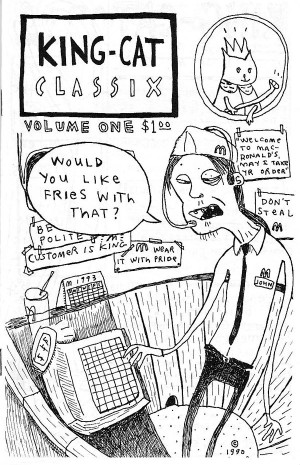 KING-CAT
CLASSIX
VOLUME ONE $1.00
WELCOME
TO MAC-
RONALD'S,
MAY I TAKE
YR ORDER
WOULD
YOU LIKE
FRIES WITH
THAT?
DON'T
STEAL
M
BE
POLITE
CUSTOMER IS KING
M WEAR
IT WITH PRIDE
M 1993
M
JOHN
M
© 
1990